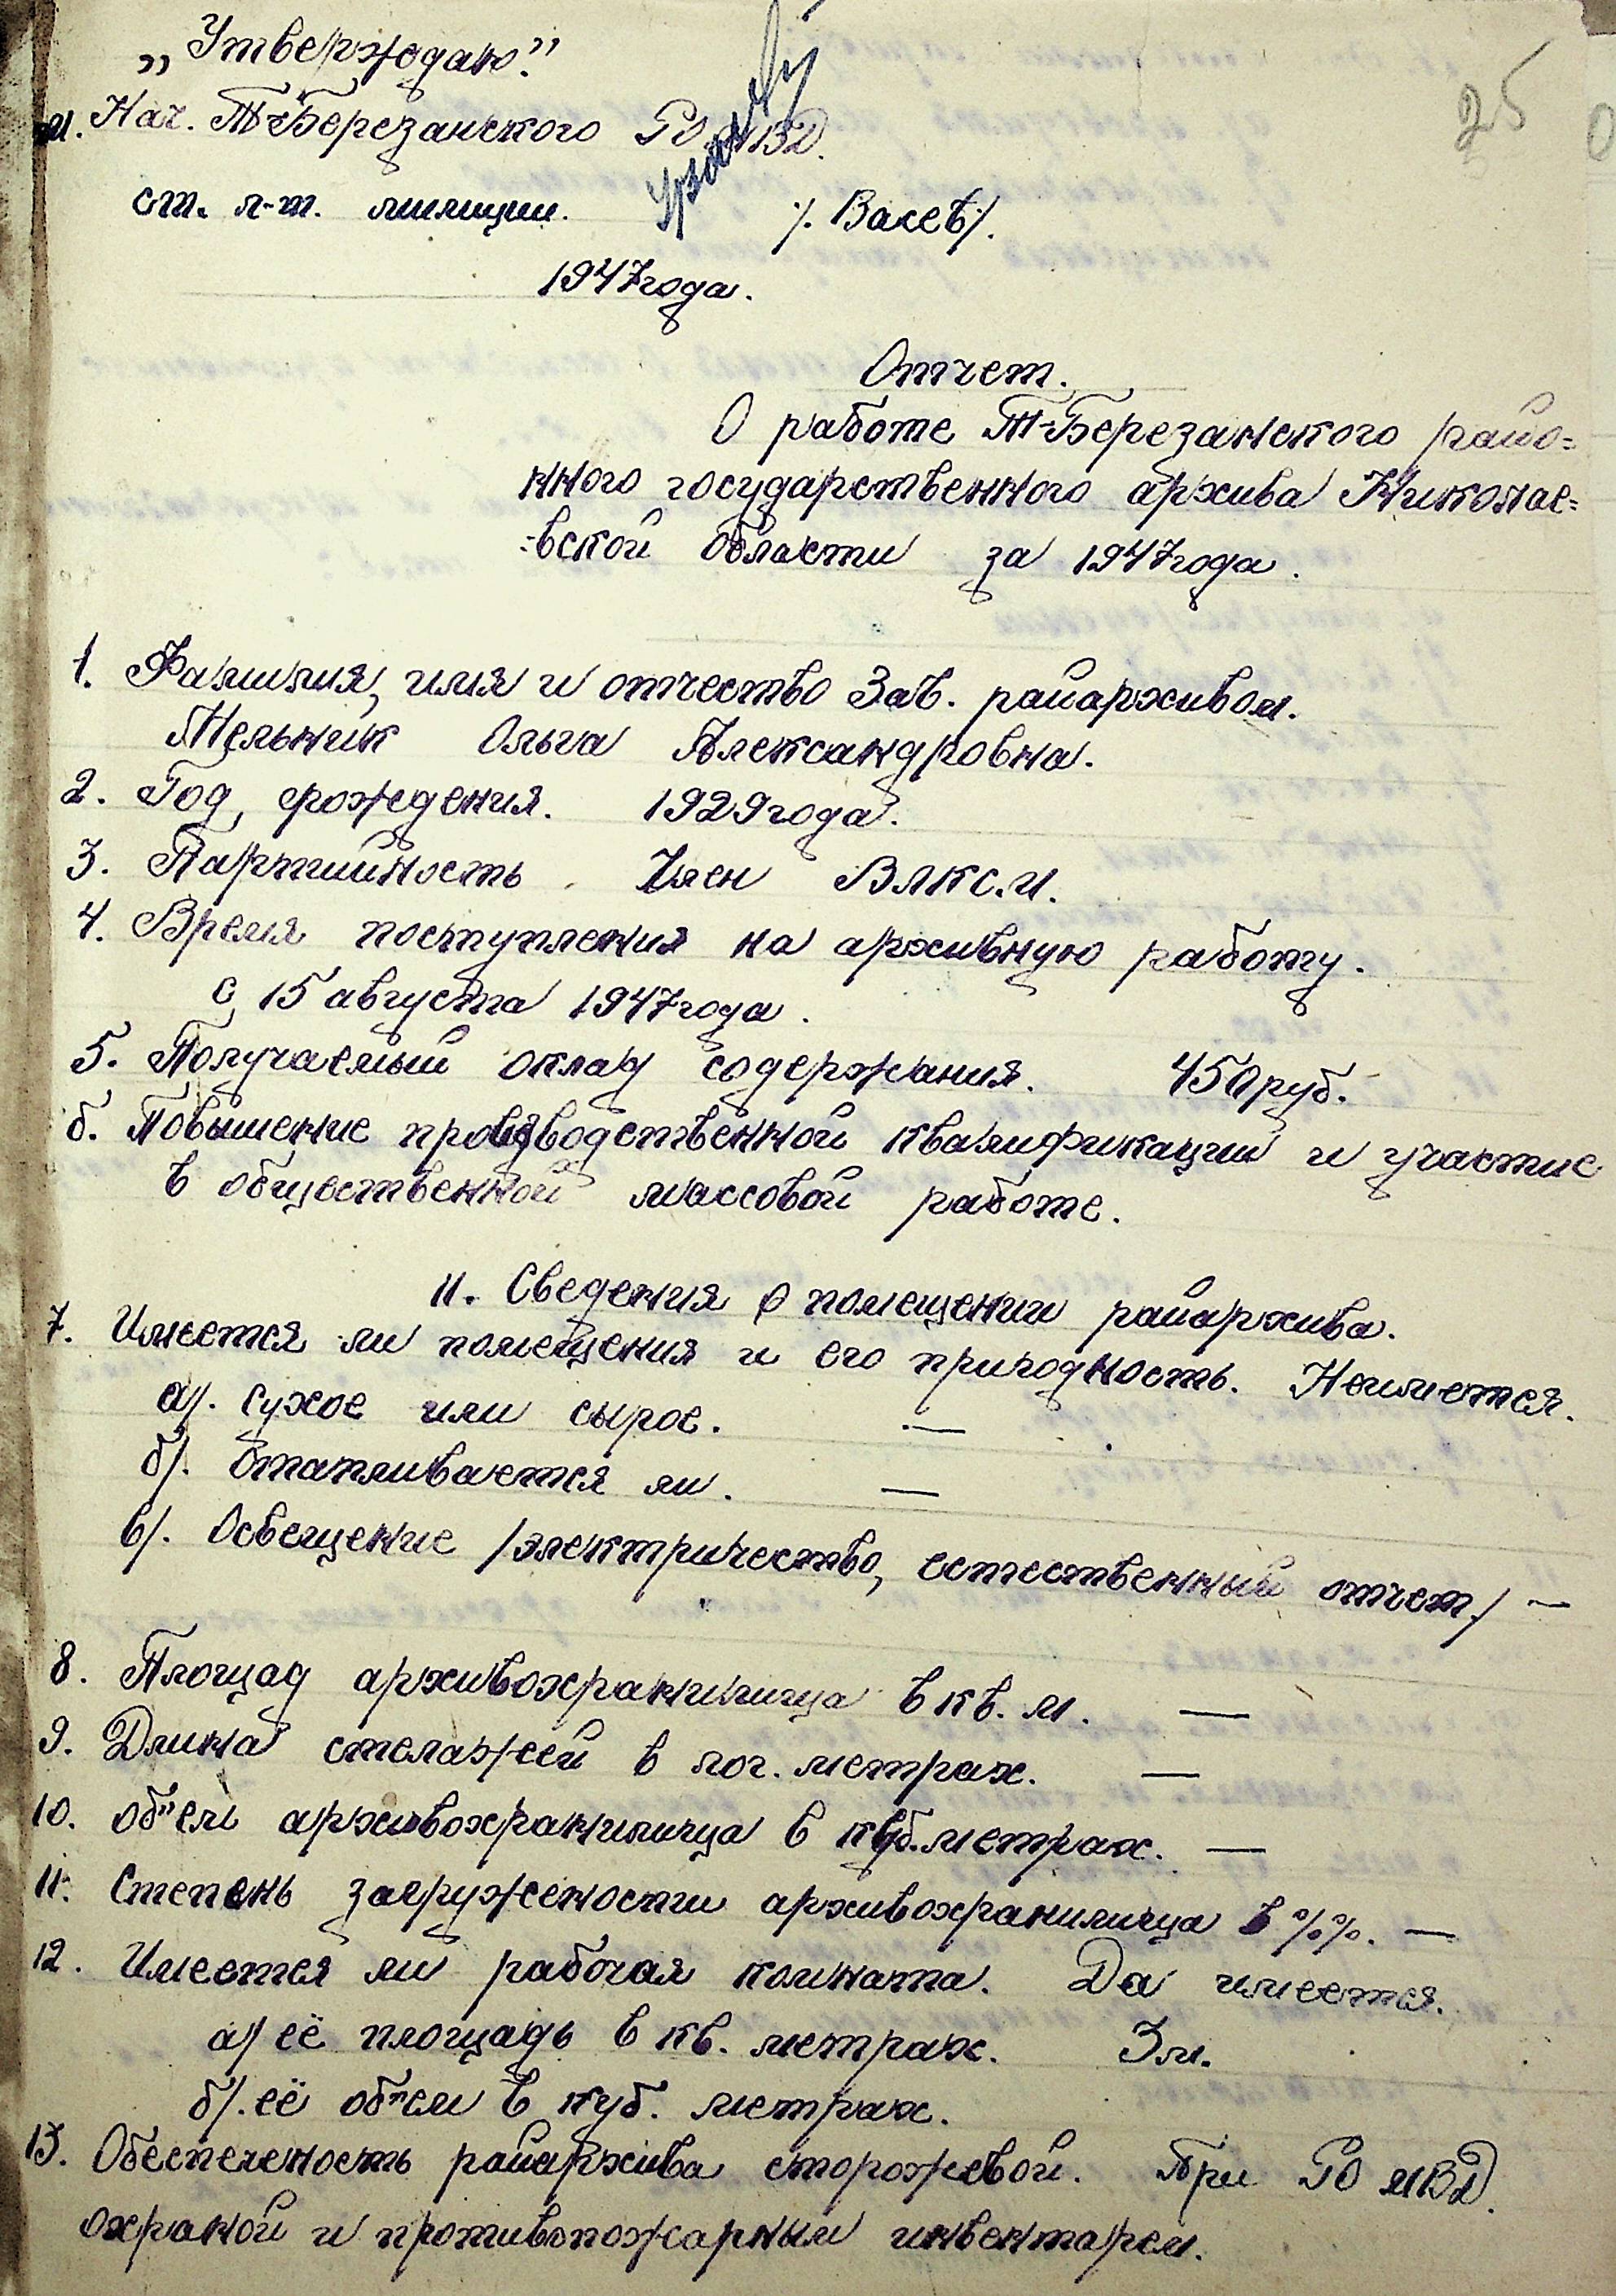 „Утверждаю."
25
Нач. Т-Березанского РО МВД.
ст. л-т. милиции. /. Васев/.
1947года.
Отчет.
О работе Т-Березанского райо=
нного государственного архива Николае=
-вской области за 1947года.
1. Фамилия, имя и отчество Зав. райархивом.
Мельник Ольга Александровна.
2. Год, рождения. 1929года.
3. Партийность Член ВЛКС.М.
4. Время поступления на архивную работу.
с 15 августа 1947года.
5. Получаемый оклад содержания. 450руб.
6. Повышение производственной квалификации и участие
в общественной массовой работе.
II. Сведения о помещении райархива.
7. Имеется ли помещения и его пригодность. Неимеется.
а/. сухое или сырое. —
б/. Отапливается ли. —
в/. Освещение /электричество, естественный отчет./ —
8. Площад архивохранилища в кв. м. —
9. Длина стелажей в пог. метрах. —
10. об"ем архивохранилища в куб.метрах. —
11. Степень загружености архивохранилища в %%. —
12. Имеется ли рабочая комната. Да имеется.
а/ её площадь в кв. метрах. 3м.
б/. её об"ем в куб. метрах.
13. Обеспеченость райархива сторожевой. При РО МВД.
охраной и противопожарным инвентарем.